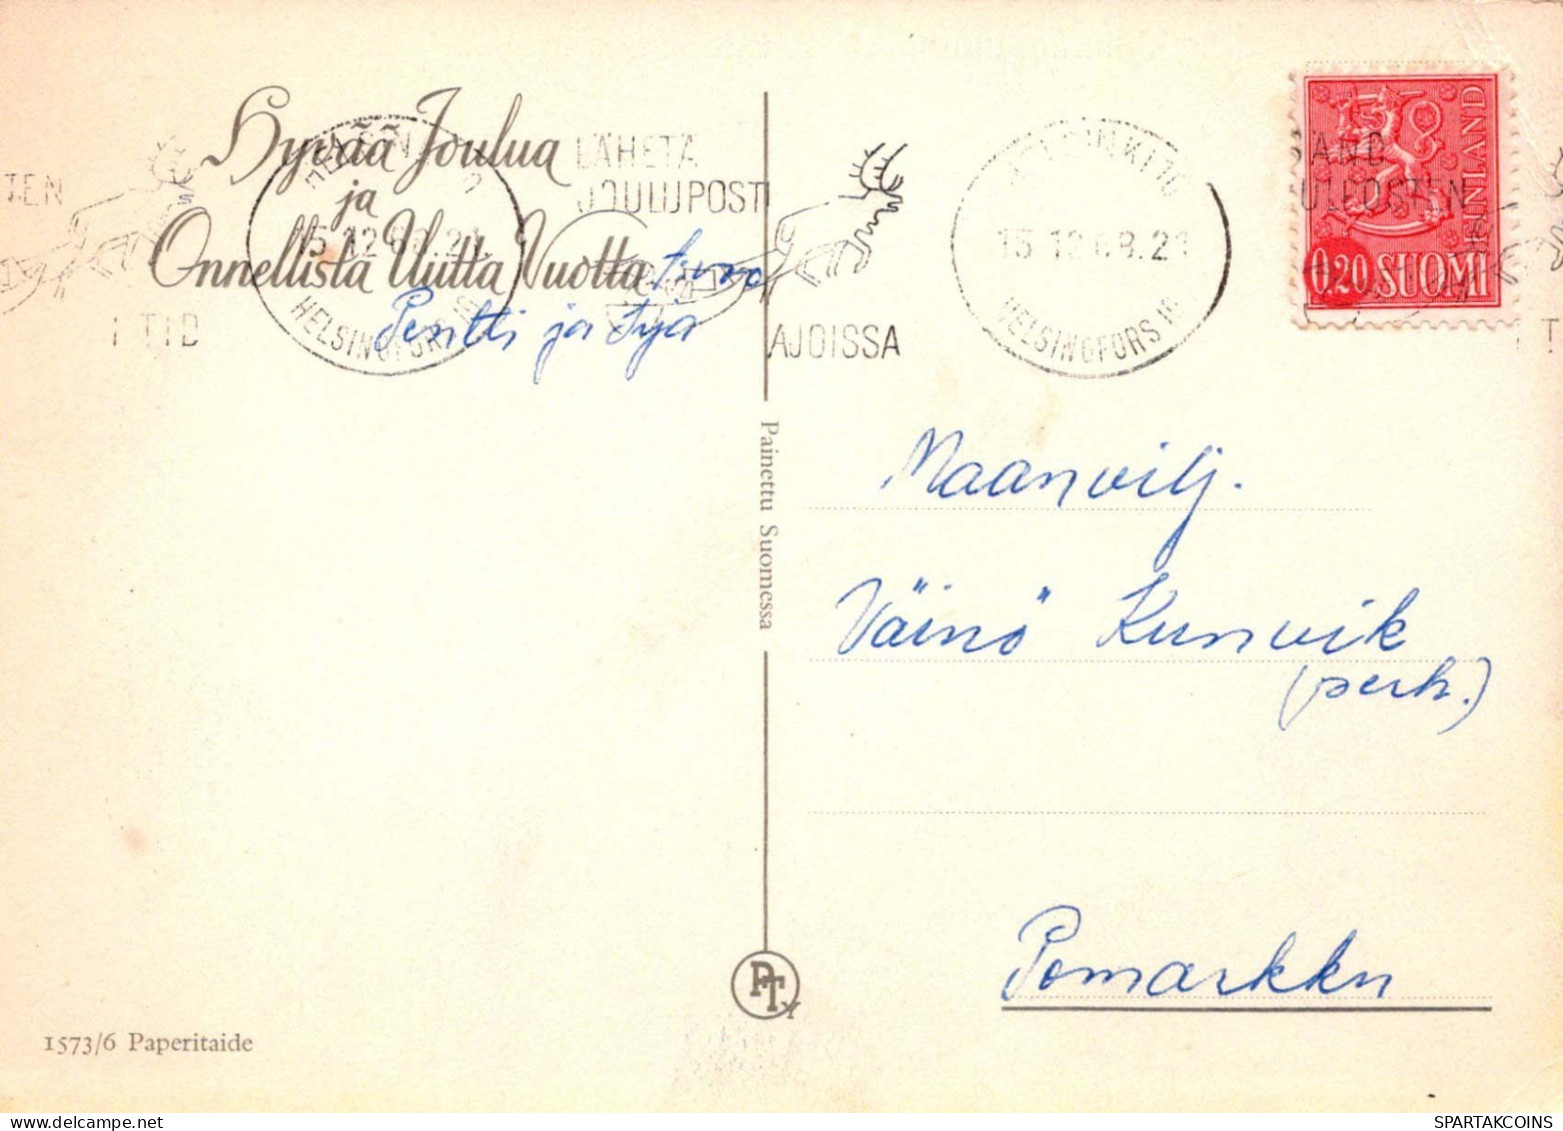 Hyvää Joulua
ja
Onnellista Uutta Vuotta
Pentti ja
LÄHETÄ
JOULUPOSTI
AJOISSA
TEN
I TID
HELSINGFORS
15.12.68.21
HELSINKI 10
15.12.68.21
HELSINGFORS 10
SÄND
JULPOSTEN
I T
FINLAND
0,20 SUOMI
Maanvilj.
Väinö Kunvik
(perh.)
Pomarkku
Painettu Suomessa
PT
1573/6 Paperitaide
SPARTAKCOINS